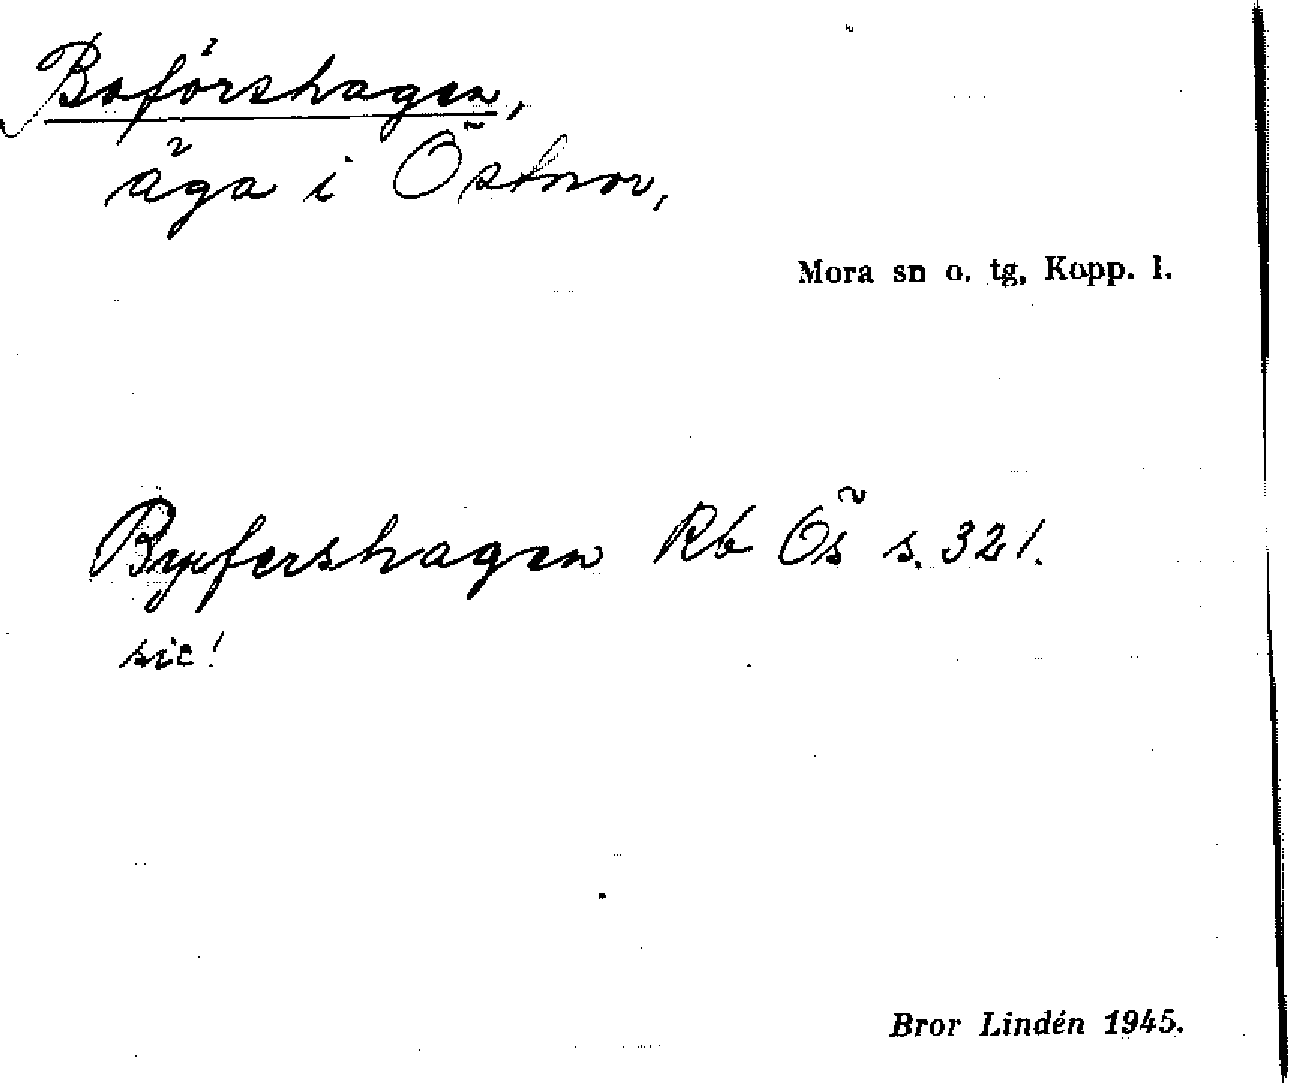 Boförshagen,
äga i Östnor,
Mora sn o. tg, Kopp. l.
Byxfershagen Rb Ös s. 321.
sic!
Bror Lindén 1945.